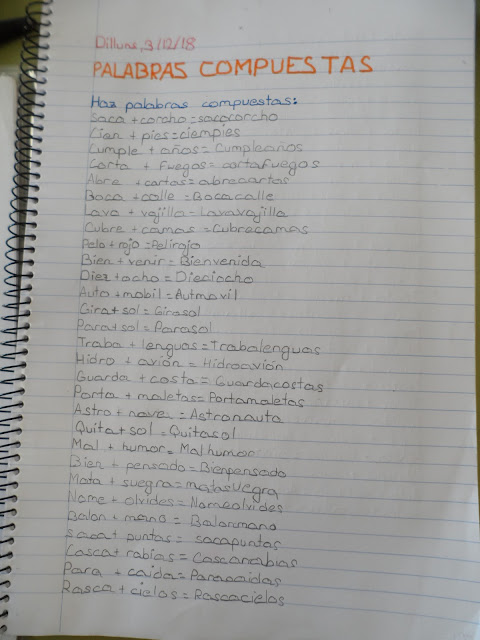 Dilluns, 3/12/18
PALABRAS COMPUESTAS
Haz palabras compuestas:
Saca + corcho = sacacorcho
Cien + pies = ciempies
Cumple + años = Cumpleaños
Corta + fuegos = cortafuegos
Abre + cartas = abrecartas
Boca + calle = Bocacalle
Lava + vajilla = Lavavajilla
Cubre + camas = Cubrecamas
Pelo + rojo = Pelirojo
Bien + venir = Bienvenida
Diez + ocho = Dieciocho
Auto + mobil = Autmovil
Gira + sol = Girasol
Para + sol = Parasol
Traba + lenguas = Trabalenguas
Hidro + avión = Hidroavión
Guarda + costa = Guardacostas
Porta + maletas = Portamaletas
Astro + nave = Astronauta
Quita + sol = Quitasol
Mal + humor = Malhumor
Bien + pensado = Bienpensado
Mata + suegra = matasuegra
Nome + olvides = Nomeolvides
Balon + mano = Balonmano
saca + puntas = sacapuntas
Casca + rabias = Cascarrabias
Para + caida = Paracaidas
Rasca + cielos = Rascacielos